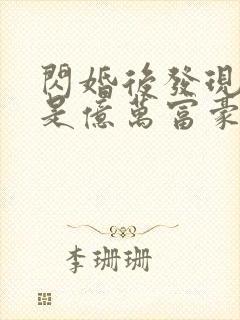 閃婚後發現
是億萬富豪
李珊珊